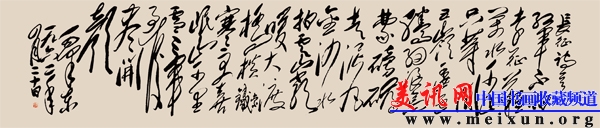 长征诗一首
红军不
怕远征难
万水千山
只等闲
五岭逶迤
腾细浪乌
蒙磅礴
走泥丸
金沙水
拍云崖
暖大渡
桥横铁索
寒更喜
岷山千里
雪三军
过后
尽开
颜
毛泽东
一九六二年
美讯网 中国书画收藏频道
www.meixun.org